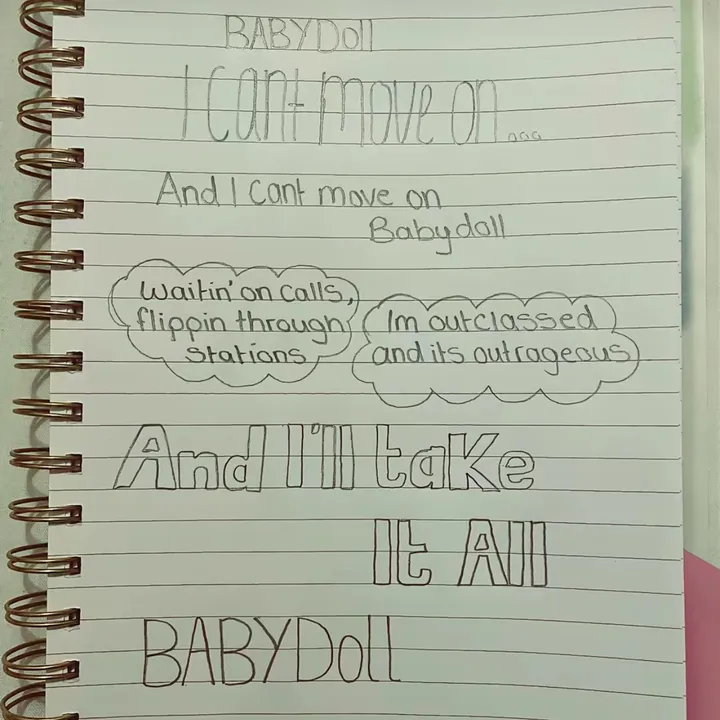 BABYDoll
I cant move on...
And I cant move on
Babydoll
Waitin' on calls,
flippin through
Stations
Im outclassed
and its outrageous
And I'll take
It All
BABYDoll